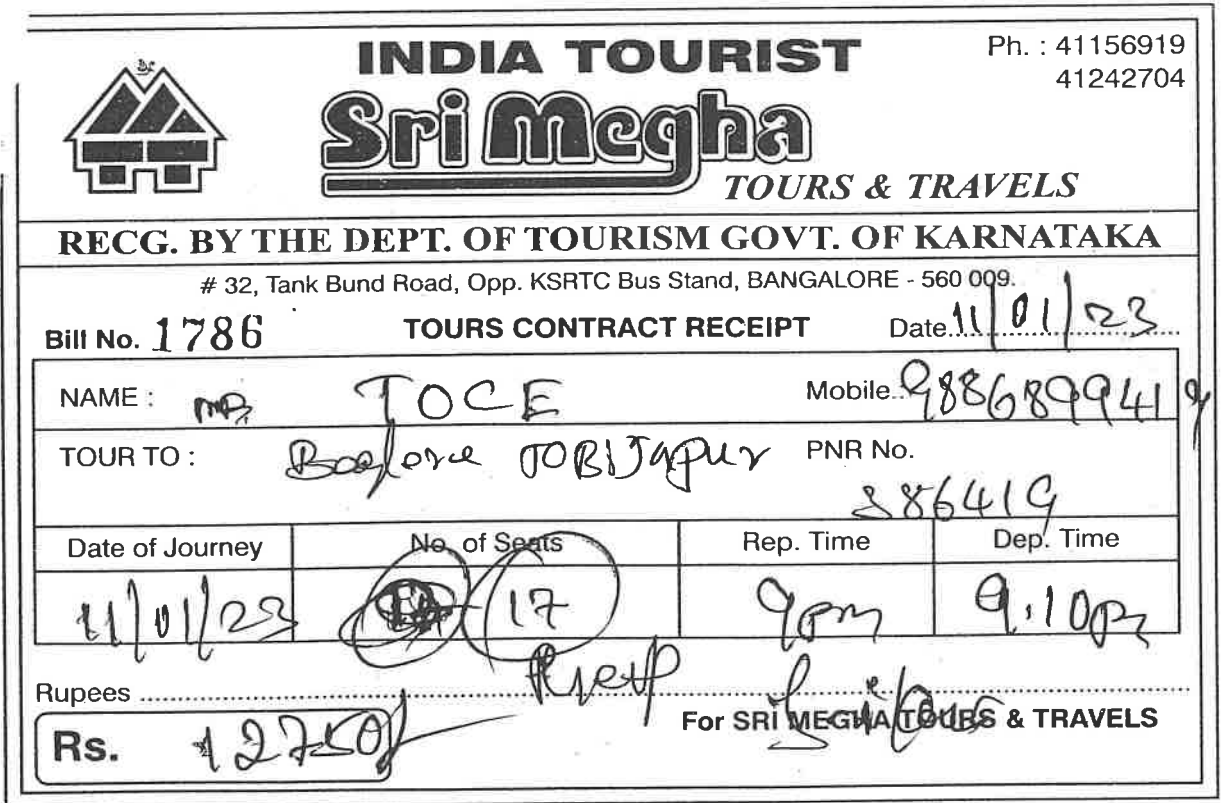 INDIA TOURIST
Ph. : 41156919
41242704
Sri Megha
TOURS & TRAVELS
RECG. BY THE DEPT. OF TOURISM GOVT. OF KARNATAKA
# 32, Tank Bund Road, Opp. KSRTC Bus Stand, BANGALORE - 560 009.
Bill No. 1786 TOURS CONTRACT RECEIPT Date 11/01/23
NAME : mr TOCE Mobile.. 9886899419
TOUR TO : TO BIJapur PNR No.
S86419
Date of Journey No. of Seats Rep. Time Dep. Time
11/01/23 17 9pm 9.10pm
Rupees
Rs. 12750/-
For SRI MEGHA TOURS & TRAVELS